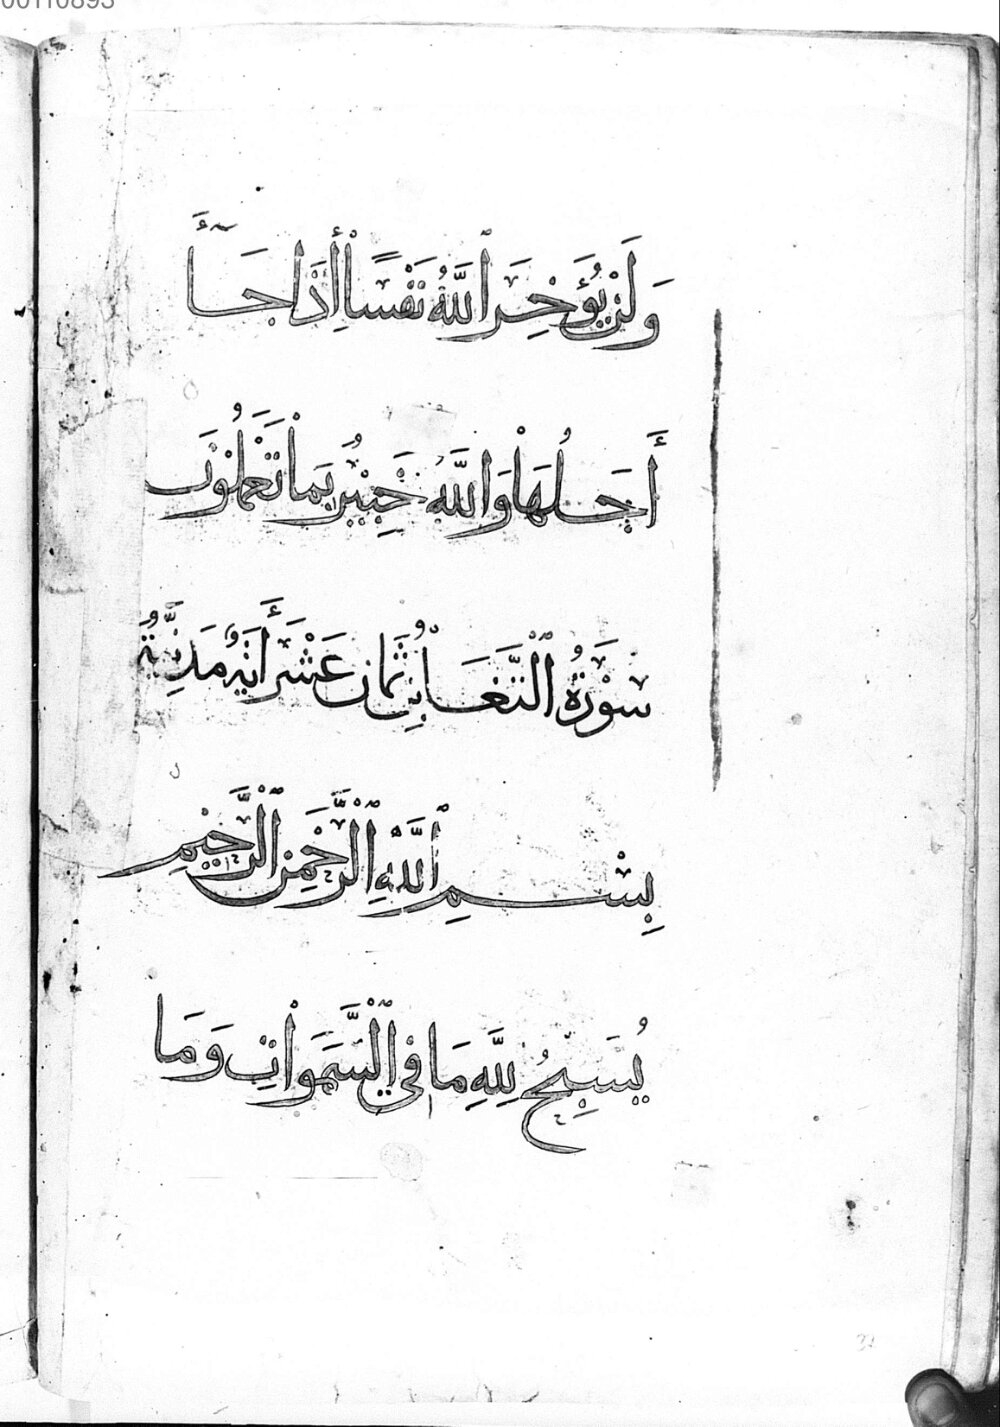 00110893
وَلَنْ يُؤَخِّرَ ٱللَّهُ نَفْسًا إِذَا جَآءَ
أَجَلُهَا وَٱللَّهُ خَبِيرٌ بِمَا تَعْمَلُونَ
سُورَةُ ٱلتَّغَابُنِ ثَمَانِ عَشْرَ أَيَةً مَدَنِيَّةٌ
بِسْمِ ٱللَّهِ ٱلرَّحْمَنِ ٱلرَّحِيمِ
يُسَبِّحُ لِلَّهِ مَا فِي ٱلسَّمَوَاتِ وَمَا